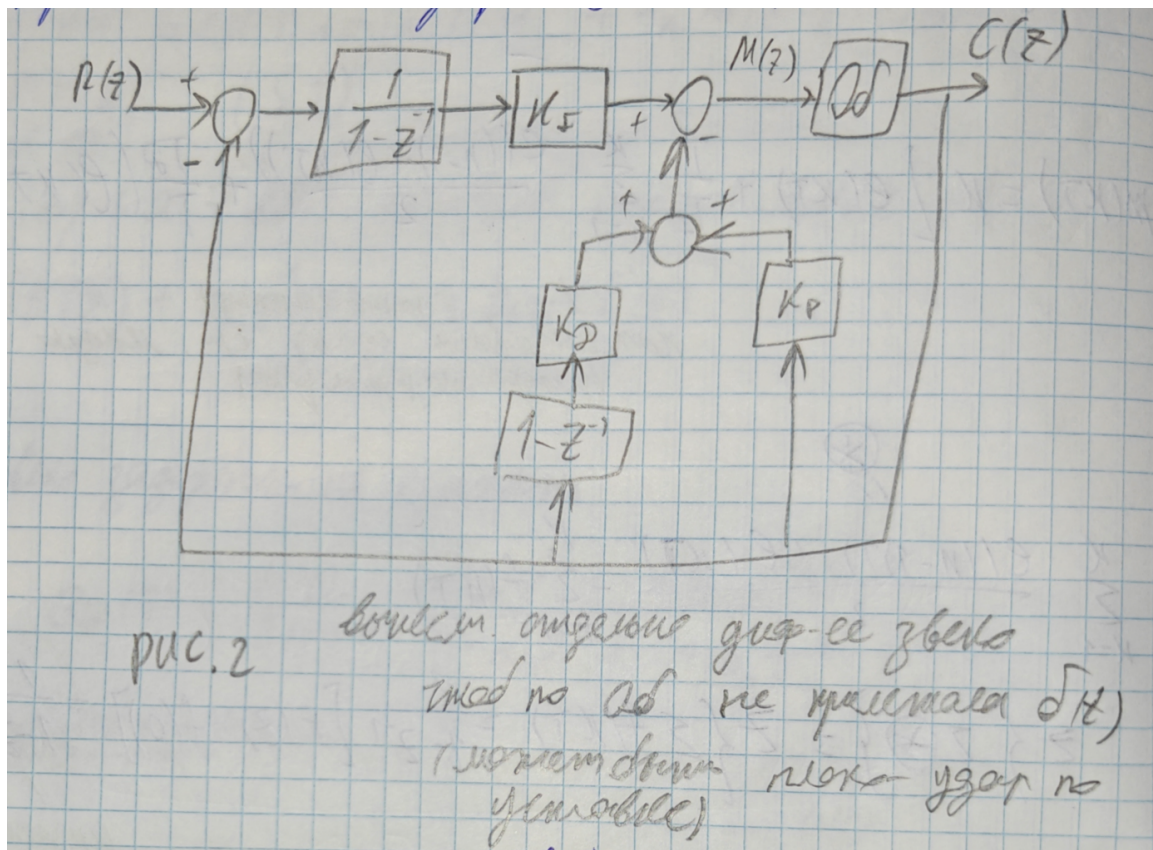 R(z) + -
1
1-z⁻¹
K_I
+ -
M(z)
Об
C(z)
+ +
K_D
K_P
1-z⁻¹
рис. 2
вынесли отдельно диф-ее звено
чтоб по Об не прилетала δ(t)
(может быть плохо удар по
установке)